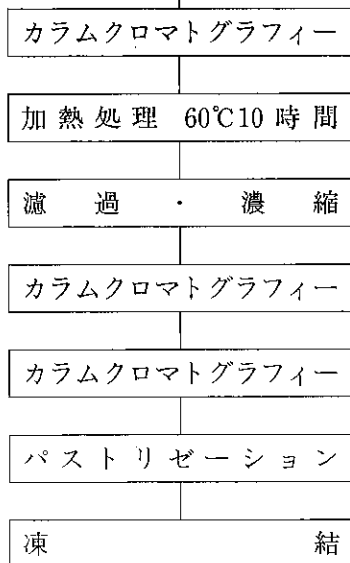 カラムクロマトグラフィー
加熱処理 60℃10時間
濾過・濃縮
カラムクロマトグラフィー
カラムクロマトグラフィー
パストリゼーション
凍結